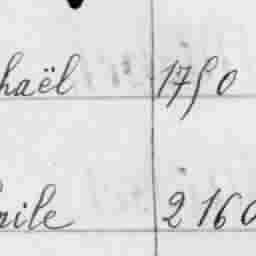 haël 1750
mile 2160